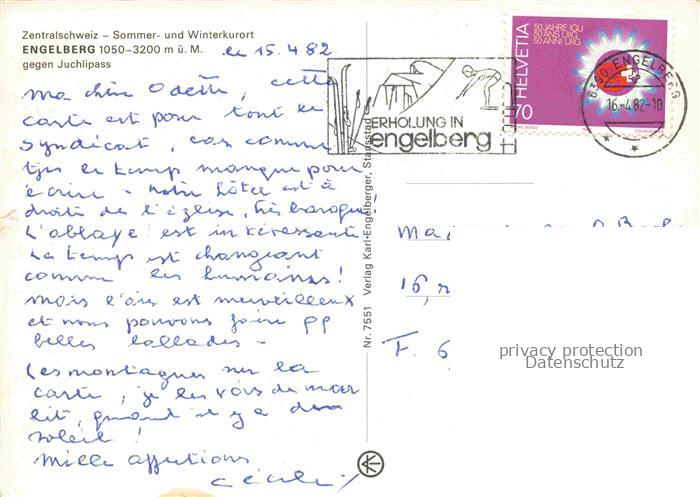 Zentralschweiz – Sommer- und Winterkurort
ENGELBERG 1050–3200 m ü. M.
gegen Juchlipass
le 15.4 82
ma chère Odette, cette
carte est pour tout le
syndicat, car comme
tjrs le temps manque pour
écrire - notre hôtel est à
droite de l'église, très baroque,
L'abbaye est intéressante
Le temps est changeant
comme les humains!
mais l'air est merveilleux
et nous pouvons faire qq
belles ballades -
Les montagnes sur la
carte, je les vois de mon
lit, quand il y a du
soleil!
Mille affections
Cécile
Nr. 7551 Verlag Karl-Engelberger, Stansstad
ERHOLUNG IN
engelberg
HELVETIA
70
50 JAHRE IGU
50 ANS UIIG
50 ANNI UIIG
6390 ENGELBERG
16.-4.82-10
Ma
16,
F. 6
privacy protection
Datenschutz